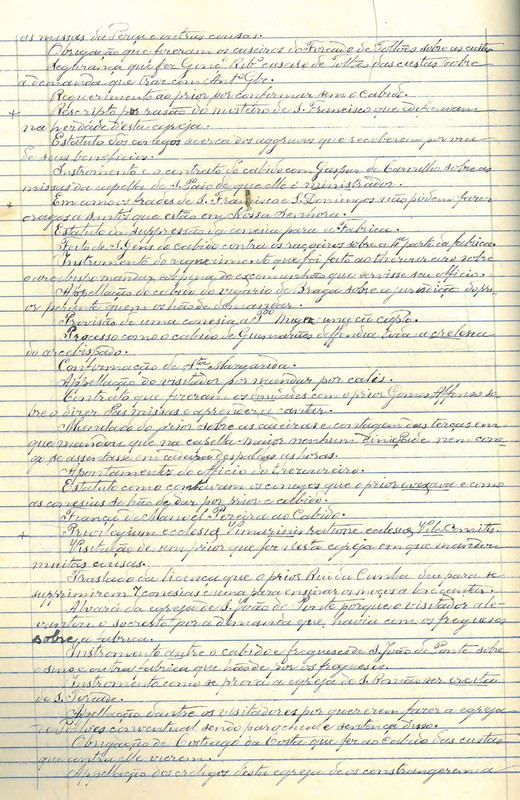 as missas da Perçu e outras cousas.
Obrigação que fizeram os caseiros do Forcado de Tolões sobre as custas
segurança que fez Genó Rib.º caseiro de Tolões das custas sobre
a demanda que traz com Ant.º Glz.
Requerimento ao prior por confirmar sem o Cabido.
Rescripto por rasão do misteiro de S. Francisco que edificavam
na herdade desta egreja.
Estatuto dos conegos acerca dos aggravos que receberem por via
de seus beneficios.
Instromento e o contrato do cabido com Gaspar de Carvalho sobre as
missas da capella de S. Paio de que elle é ministrador.
Em como os frades de S. Francisco e S. Domingos não pódem fazer
a santos que estão em Nossa Senhora.
Estatuto da suppressão da conesia para a Fabrica.
Feito de S. Gens do cabido contra os raçoeiros sobre a parte da fabrica.
Instrumento de requerimento que foi feito ao thesoureiro sobre
o arcebispo mandar sob pena de excommunhão que servisse seu officio.
Appellação do cabido do vigario de Braga sobre a jurisdicção do pri-
or perante quem os hão de demandar.
Provisão de uma conesia a
Processo como o cabido de Guimarães defendia toda a cleresia
do arcebispado.
Confirmação de S.ta Margarida.
Appellação do visitador por mandar por calis.
Contrato que fizeram os com o prior Gomes Affonso so-
bre o dizer das missas e aprender a cantar.
Mandado do prior sobre as cadeiras e contagem das terças em
que mandou que na capella maior nenhum nem cone-
go se assentasse em cadeiras despaldas as horas.
Apontamentos do officio do thesoureiro.
Estatuto como contavam os conegos que o prior e como
as conesias se hão de dar por prior e cabido.
Fiança de Manuel Pereira ao Cabido.
Privilegium ecclesiæ Vimaranis ratione ecclesiæ
Visitação de um prior que fez nesta egreja em que mandou
muitas cousas.
Traslado da licença que o prior Rui da Cunha deu para se
supprimirem 7 conesias é uma para ensinar os moços a ler e cantar.
Alvará da egreja de S. João de Ponte porque o visitador ale-
vantou o socrosto por a demanda que havia com os freguezes
sobre a fabrica.
Instromento antre o cabido e freguezes de S. João de Ponte sobre
o sino e outra fabrica que hão de por os freguezes.
Instromento como se prova a egreja de S. Romão ser
de S. Torcade.
Appellação dantre os visitadores por quererem fazer a egreja
de Tolões conventual sendo parochial e sentença disso.
Obrigação de da Costa que fez ao Cabido das custas
que contra elle vierem.
Appellação dos clerigos desta egreja de os constrangerem a